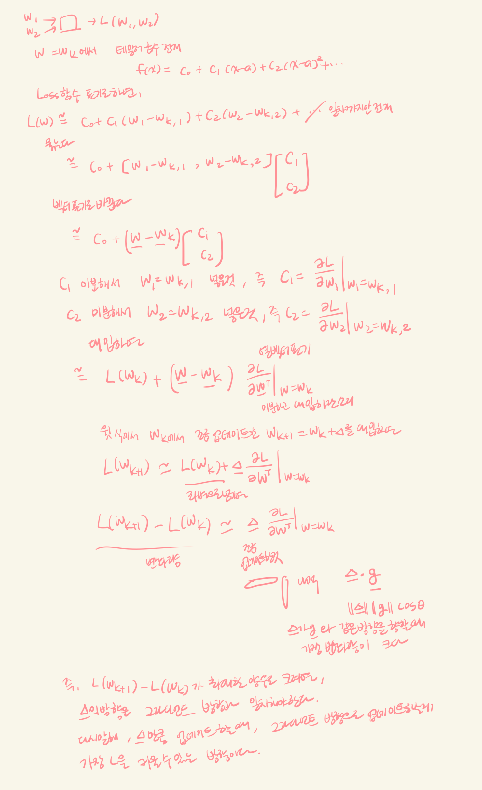 w₁
w₂ → □ → L(w₁, w₂)
w = wₖ에서 테일러 급수 전개
f(x) = C₀ + C₁(x-a) + C₂(x-a)²+...
Loss함수 표기로하면,
L(w) ≅ C₀ + C₁(w₁-wₖ,₁) + C₂(w₂-wₖ,₂) + 일차까지만 전개
묶는다
≅ C₀ + [w₁-wₖ,₁, w₂-wₖ,₂] [C₁ C₂]
벡터표기로 바꾼다
≅ C₀ + (w-wₖ) [C₁ C₂]
C₁ 미분해서 w₁=wₖ,₁ 넣은것, 즉 C₁ = ∂L/∂w₁ |w₁=wₖ,₁
C₂ 미분해서 w₂=wₖ,₂ 넣은것, 즉 C₂ = ∂L/∂w₂ |w₂=wₖ,₂
대입하면
열벡터표기
≅ L(wₖ) + (w-wₖ) ∂L/∂wᵀ |w=wₖ
미분하고 대입하므로
윗 식에서 wₖ에서 업데이트한 wₖ₊₁ = wₖ+Δ를 대입하면
L(wₖ₊₁) ≅ L(wₖ) + Δ ∂L/∂wᵀ |w=wₖ
L(wₖ₊₁) - L(wₖ) ≅ Δ ∂L/∂wᵀ |w=wₖ
변화량
Δ·g
‖Δ‖ ‖g‖ cosθ
Δ가 g 와 같은방향을 향할때
가장 변화량이 크다
즉, L(wₖ₊₁) - L(wₖ)가 최대한 양수로 크려면,
Δ의방향은 그래디언트 방향과 일치해야한다.
다시말해, Δ만큼 업데이트할때, 그래디언트 방향으로 업데이트하는게
가장 L을 키울수있는 방향이다.